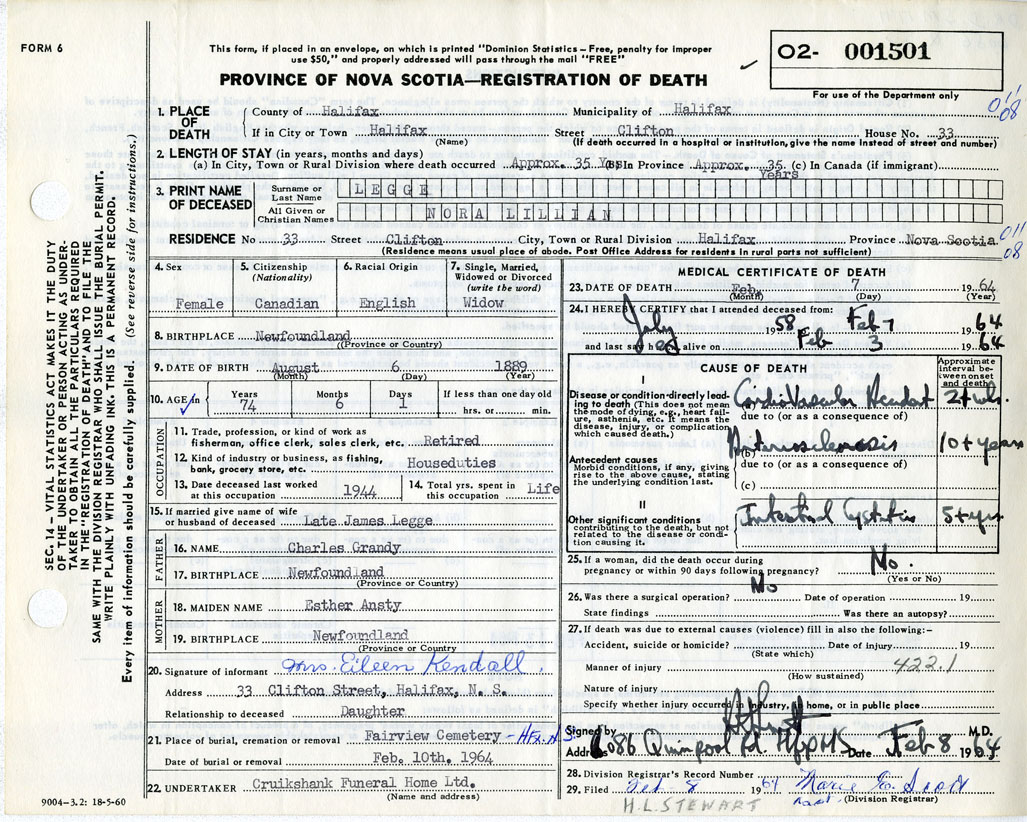 FORM 6
This form, if placed in an envelope, on which is printed "Dominion Statistics – Free, penalty for improper
use $50," and properly addressed will pass through the mail "FREE"
PROVINCE OF NOVA SCOTIA—REGISTRATION OF DEATH
O2- 001501
For use of the Department only
011
08
SEC. 14 – VITAL STATISTICS ACT MAKES IT THE DUTY
OF THE UNDERTAKER OR PERSON ACTING AS UNDER-
TAKER TO OBTAIN ALL THE PARTICULARS REQUIRED
IN THE "REGISTRATION OF DEATH" AND TO FILE THE
SAME WITH THE DIVISION REGISTRAR WHO SHALL ISSUE THE BURIAL PERMIT.
WRITE PLAINLY WITH UNFADING INK. THIS IS A PERMANENT RECORD.
Every item of information should be carefully supplied. (See reverse side for instructions.)
1. PLACE OF DEATH
County of Halifax Municipality of Halifax
If in City or Town Halifax Street Clifton House No. 33
(Name) (If death occurred in a hospital or institution, give the name instead of street and number)
2. LENGTH OF STAY (in years, months and days)
(a) In City, Town or Rural Division where death occurred Approx. 35 Yrs (b) In Province Approx. 35 Years (c) In Canada (if immigrant)
3. PRINT NAME OF DECEASED
Surname or Last Name LEGGE
All Given or Christian Names NORA LILLIAN
RESIDENCE No 33 Street Clifton City, Town or Rural Division Halifax Province Nova Scotia
(Residence means usual place of abode. Post Office Address for residents in rural parts not sufficient)
011
08
4. Sex
Female
5. Citizenship (Nationality)
Canadian
6. Racial Origin
English
7. Single, Married, Widowed or Divorced (write the word)
Widow
8. BIRTHPLACE Newfoundland
(Province or Country)
9. DATE OF BIRTH August 6 1889
(Month) (Day) (Year)
10. AGE in Years Months Days If less than one day old
74 6 1 hrs. or min.
OCCUPATION
11. Trade, profession, or kind of work as
fisherman, office clerk, sales clerk, etc. Retired
12. Kind of industry or business, as fishing,
bank, grocery store, etc. Houseduties
13. Date deceased last worked
at this occupation 1944
14. Total yrs. spent in
this occupation Life
15. If married give name of wife
or husband of deceased Late James Legge
FATHER
16. NAME Charles Grandy
17. BIRTHPLACE Newfoundland
(Province or Country)
MOTHER
18. MAIDEN NAME Esther Ansty
19. BIRTHPLACE Newfoundland
(Province or Country)
20. Signature of informant Mrs. Eileen Kendall.
Address 33 Clifton Street, Halifax, N. S.
Relationship to deceased Daughter
21. Place of burial, cremation or removal Fairview Cemetery - Hfx. N.S.
Date of burial or removal Feb. 10th. 1964
22. UNDERTAKER Cruikshank Funeral Home Ltd.
(Name and address)
9004–3.2: 18-5-60
MEDICAL CERTIFICATE OF DEATH
23. DATE OF DEATH Feb. 7 1964
(Month) (Day) (Year)
24. I HEREBY CERTIFY that I attended deceased from:
July 1958 Feb 7 1964
and last saw her alive on Feb 3 1964
CAUSE OF DEATH
Approximate interval between onset and death
I
Disease or condition directly leading to death (This does not mean the mode of dying, e.g., heart failure, asthenia, etc. It means the disease, injury, or complication which caused death.)
(a) Cardio Vascular Accident 2+ wks.
due to (or as a consequence of)
Antecedent causes
Morbid conditions, if any, giving rise to the above cause, stating the underlying condition last.
(b) Arteriosclerosis 10+ years
due to (or as a consequence of)
(c)
II
Other significant conditions contributing to the death, but not related to the disease or condition causing it.
Cystitis 5+ yrs
25. If a woman, did the death occur during
pregnancy or within 90 days following pregnancy? No.
(Yes or No)
26. Was there a surgical operation? No Date of operation 19
State findings Was there an autopsy?
27. If death was due to external causes (violence) fill in also the following:–
Accident, suicide or homicide? Date of injury 19
(State which)
Manner of injury 422.1
(How sustained)
Nature of injury
Specify whether injury occurred in industry, in home, or in public place
Signed by M.D.
Address 6086 Quinpool Rd. Date Feb 8 1964
28. Division Registrar's Record Number
29. Filed Feb 8 1964 Marie E.
(Division Registrar)
H.L. STEWART